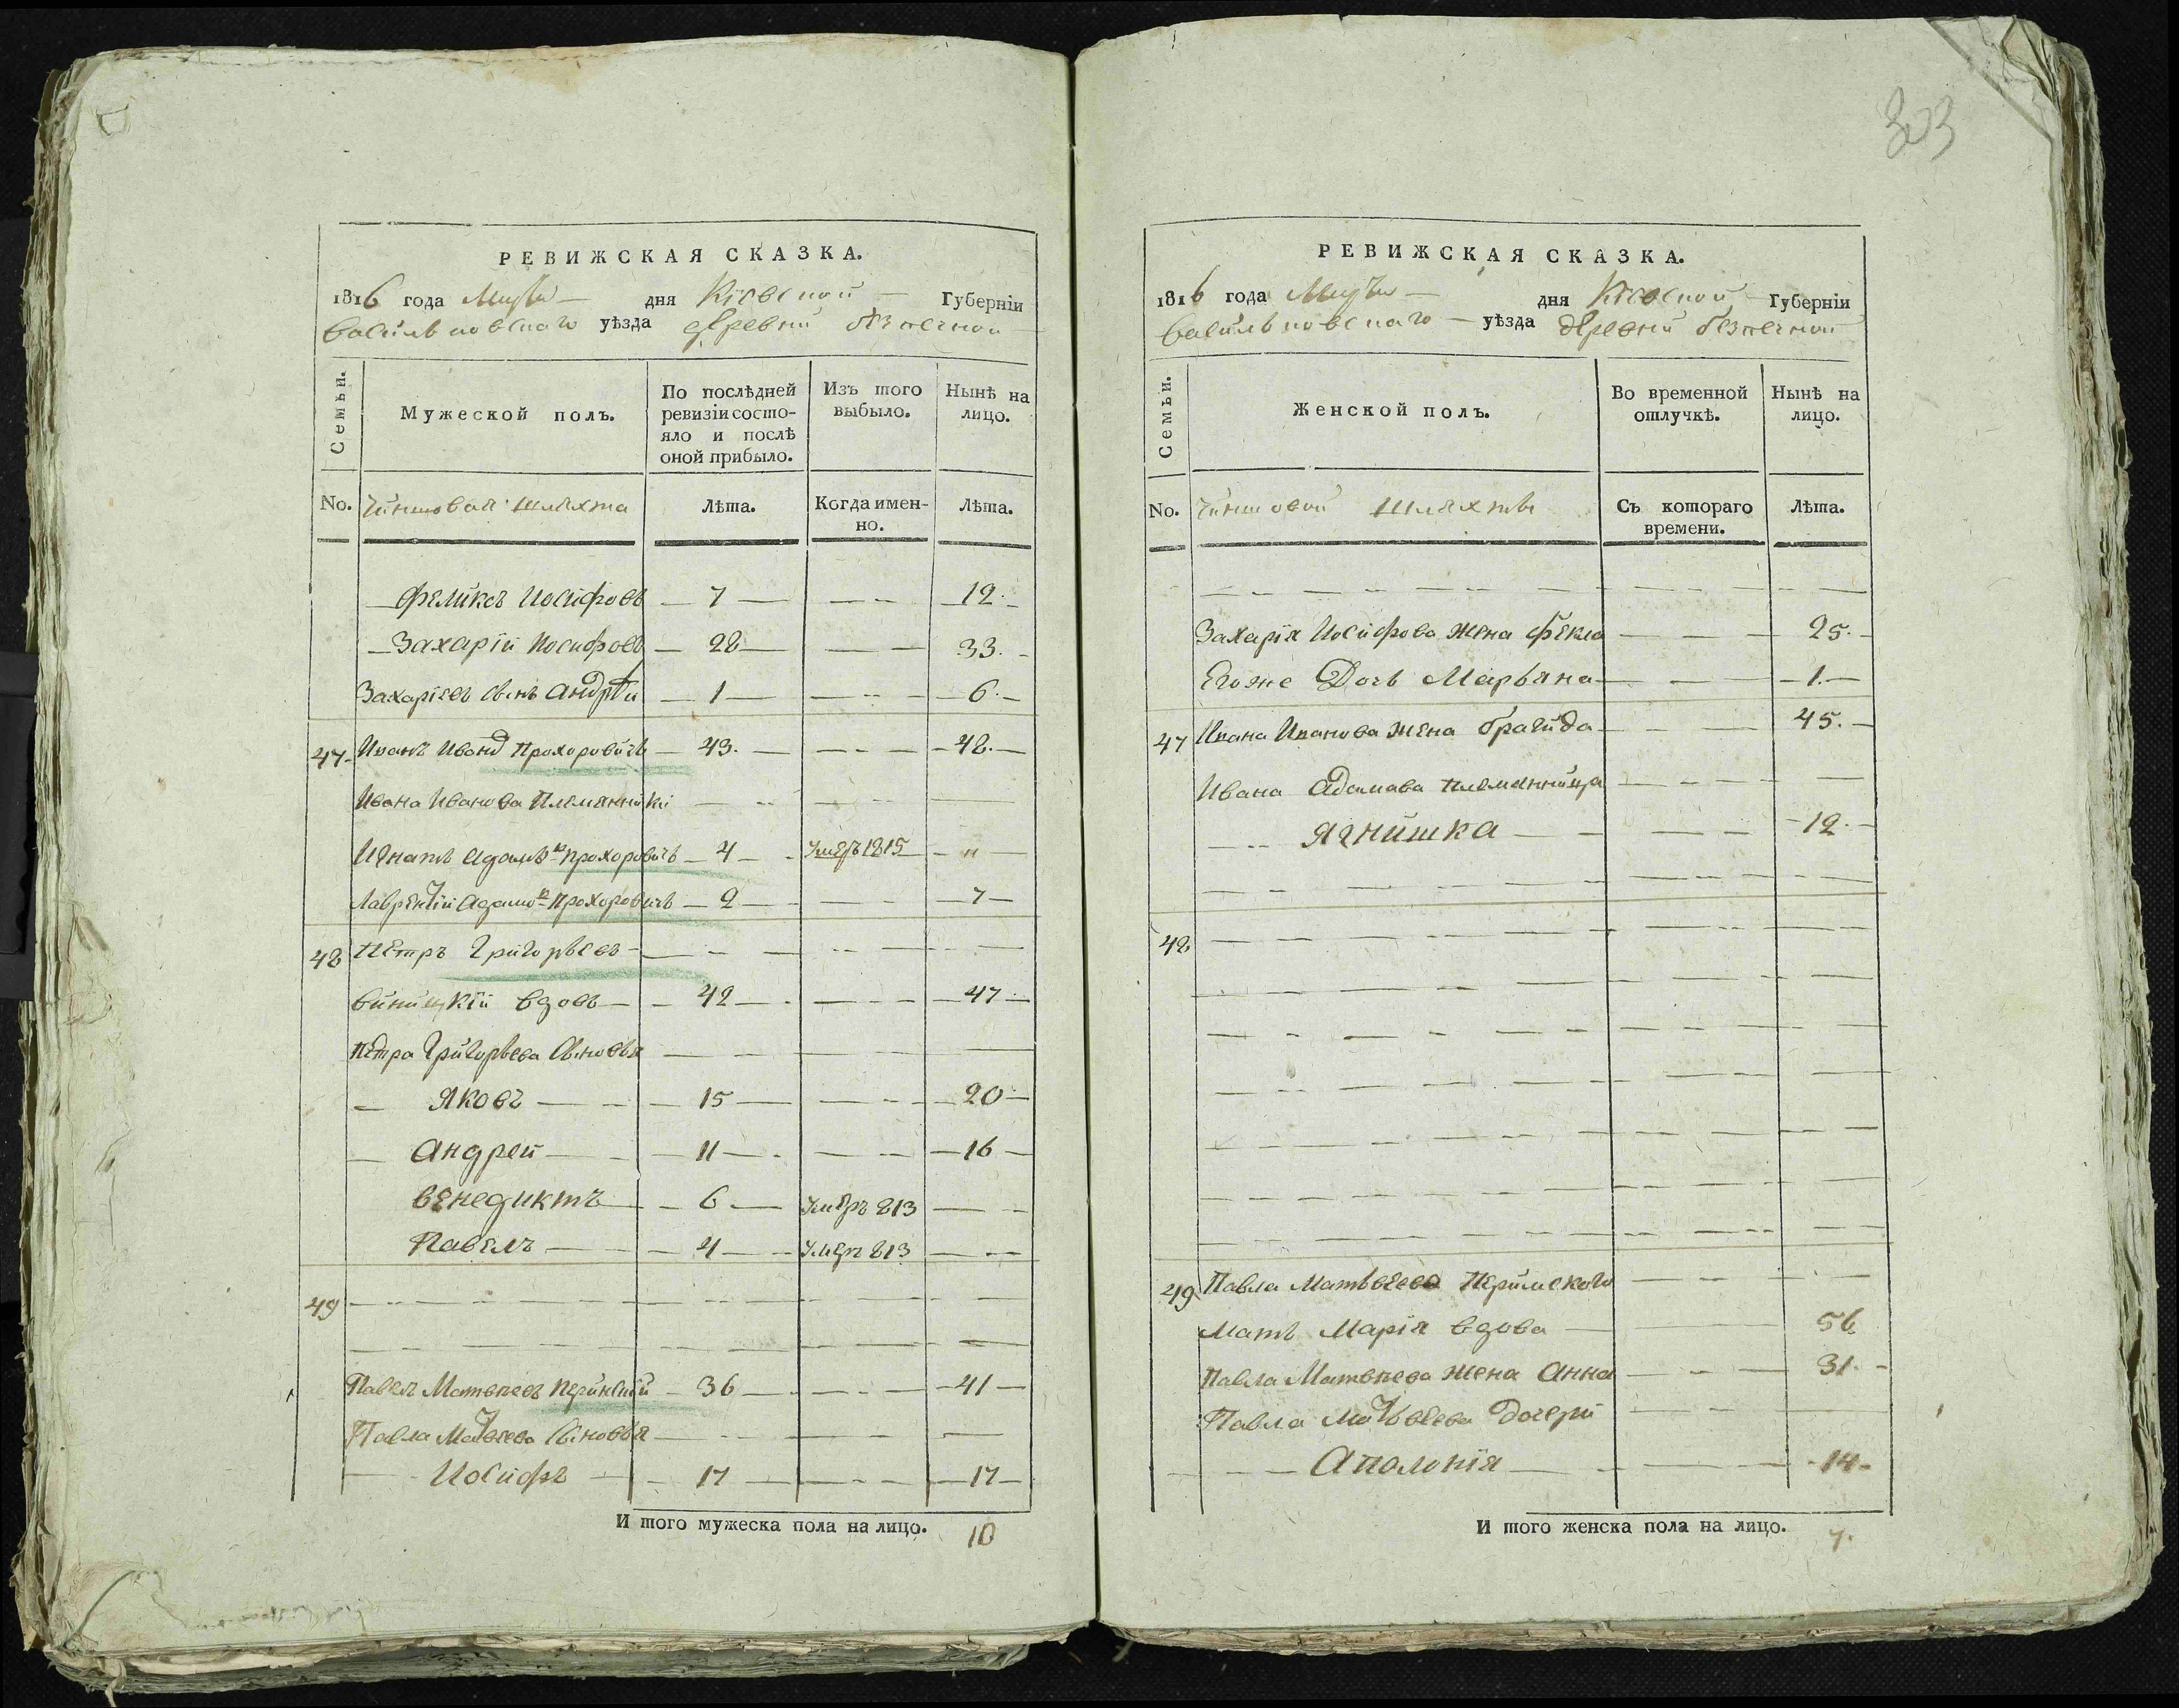 303
РЕВИЖСКАЯ СКАЗКА.
1816 года дня Кіевской Губерніи
васильковскаго уѣзда деревни безпечной
Семьи.
Мужеской полъ.
По послѣдней ревизіи состояло и послѣ оной прибыло.
Изъ того выбыло.
Нынѣ на лицо.
No. Чиншовая шляхта Лѣта. Когда именно. Лѣта.
Феликсъ Иосифовъ 7 12.
Захарій Иосифовъ 28 33.
Захаріевъ сынъ Андрѣй 1 6.
47. Иванъ Иванов Прохоровичъ 43. 48.
Ивана Иванова Племянники
Игнатъ Адамовъ Прохоровичъ 4 Умеръ 1815 "
Лаврентій Адамов Прохоровичъ 2 7
48 Петръ Григорьевъ
виницкій вдовъ 42 47
Петра Григорьева Сыновья
Яковъ 15 20
Андрей 11 16
Венедиктъ 6 Умеръ 813
Павелъ 4 Умеръ 813
49
Павелъ Матвеевъ 36 41
Павла Матвеева Сыновья
Иосифъ 17
И того мужеска пола на лицо. 10
РЕВИЖСКАЯ СКАЗКА.
1816 года дня Кіевской Губерніи
васильковскаго уѣзда деревни безпечной
Семьи.
Женской полъ.
Во временной отлучкѣ.
Нынѣ на лицо.
No. Чиншовой Шляхты Съ котораго времени. Лѣта.
Захарія Иосифова жена Фекла 25.
Егоже Дочь Марьяна 1.
47 Ивана Иванова жена бригида 45.
Ивана Адамава племянница
Ягнишка 12.
48
49 Павла Матвеева
Мать Марія вдова 56
Павла Матвеева жена Анна 31.
Павла Матвеева дочери
Аполонія 14
И того женска пола на лицо. 7.